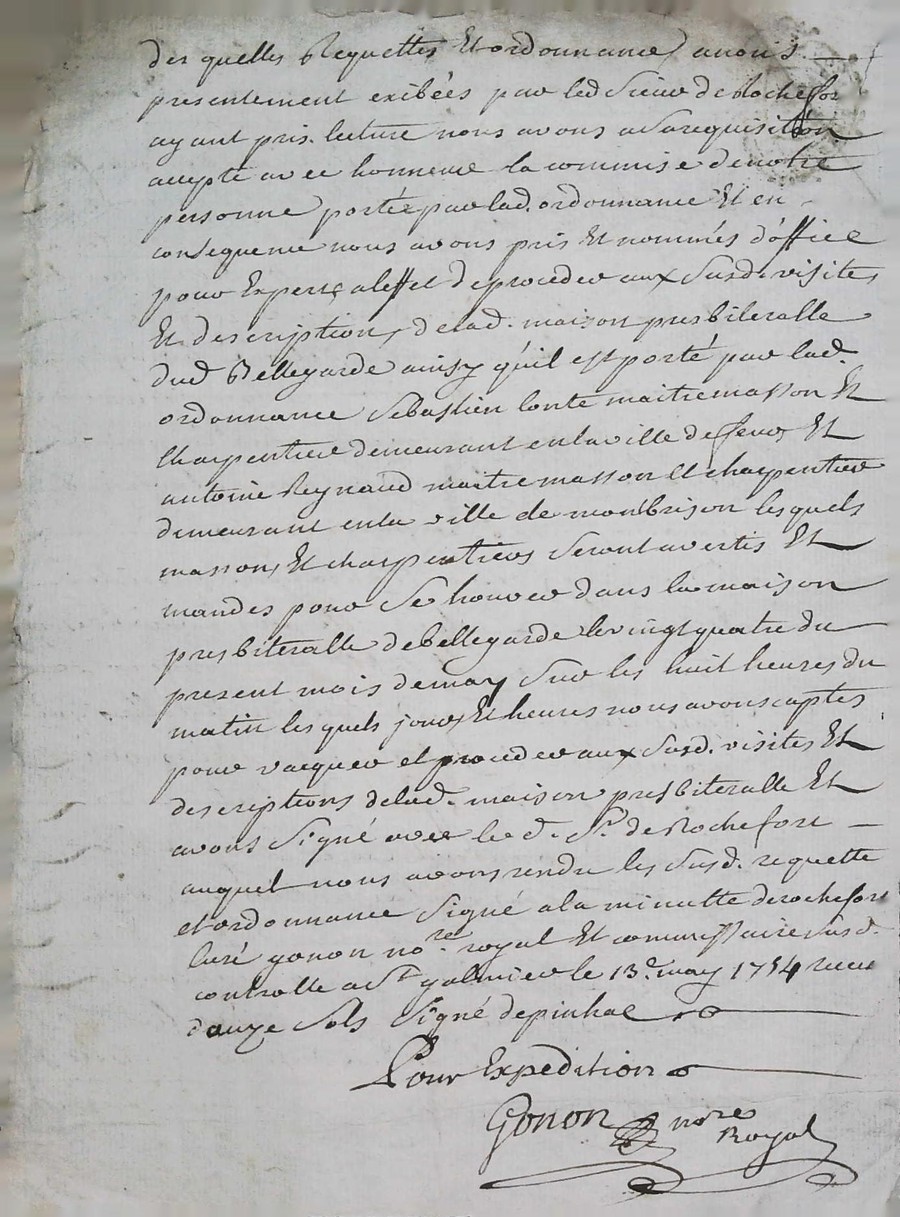 des quelles Requettes Et ordonnance avons
presentement exibées par led Sieur de Rochefor
ayant pris lecture nous avons a sa requisition
accepté avec honneur la commise de notre
personne portée par lad. ordonnance Et en
consequence nous avons pris Et nommés d'office
pour Experts a leffet de proceder aux susd. visites
Et description, de lad. maison presbiteralle
dud Bellegarde ainsy qu'il est porté par lad.
ordonnance Sebastien Conte maitre masson Et
Charpentier demeurant en la ville de feur Et
antoine Reynaud maitre masson Et charpentier
demeurant en la ville de montbrison lesquels
massons Et charpentiers seront avertis Et
mandes pour se trouver dans la maison
presbiteralle de bellegarde le vingt quatre du
present mois de may Sur les huit heures du
matin les quels jour, Et heures nous avons captes
pour vacquer et proceder aux susd. visites Et
descriptions de lad. maison presbiteralle Et
avons Signé avec le d. Sr. de Rochefort
auquel nous avons rendu les susd. requette
et ordonnance Signé a la minutte de rochefort
Curé gonon no.re royal Et commissaire susd.
controlle a St galmier le 13e. may 1754 receu
douze sols Signé depinhac
Pour Expedition
Gonon nore
Royal